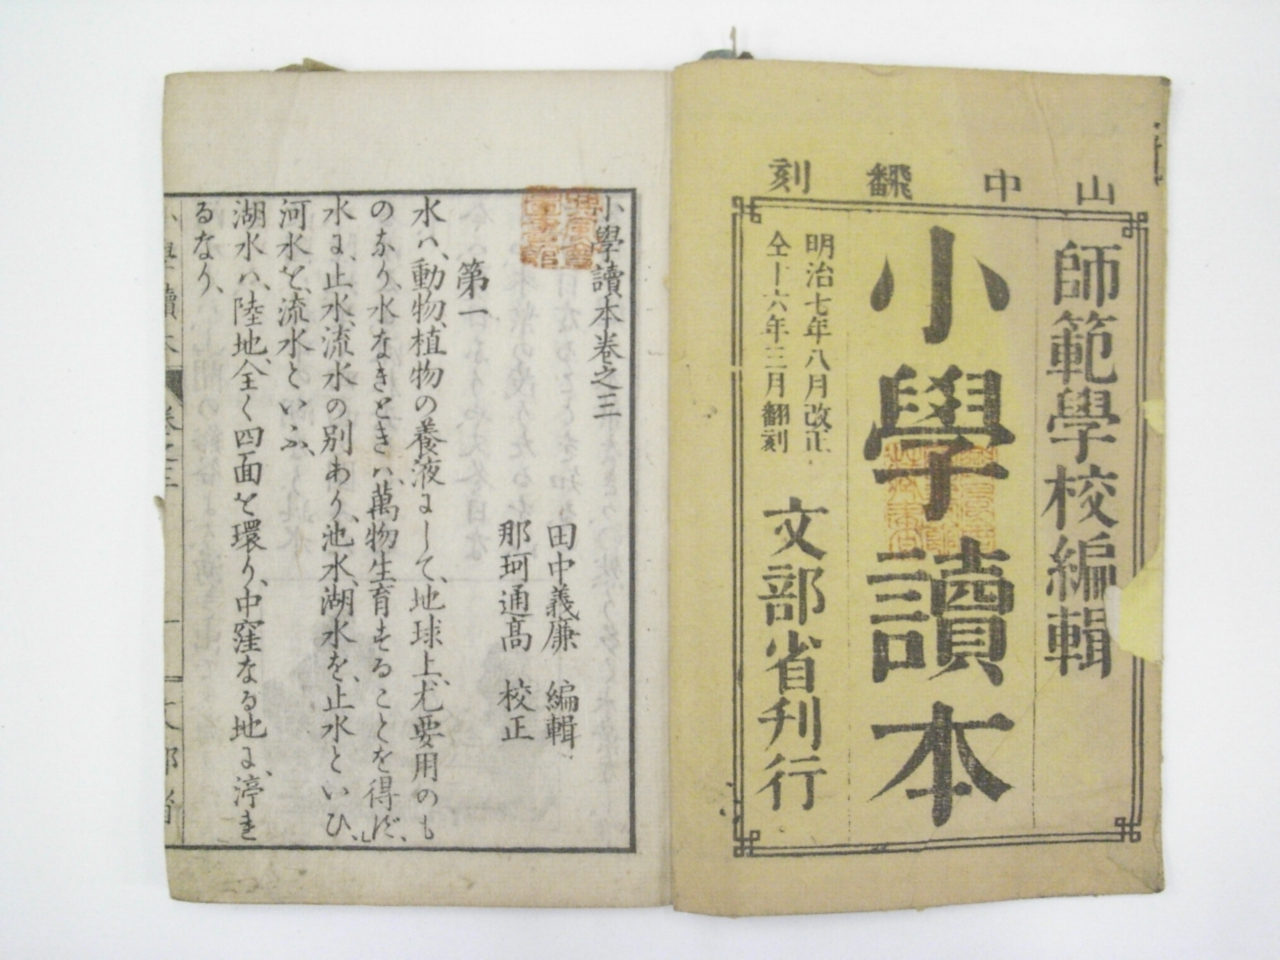 山中翻刻
師範學校編輯
小學讀本
明治七年八月改正
仝十六年三月翻刻
文部省刊行
小學讀本卷之三
田中義廉 編輯
那珂通髙 校正
第一
水ハ、動物、植物の養液にして、地球上、尤要用のも
のなり、水なきときハ、萬物生育することを得ず、
水に、止水、流水の別あり、池水、湖水を、止水といひ、
河水を、流水といふ、
湖水ハ、陸地、全く四面を環り、中窪なる地に、渟ま
るなり、
小學讀本 卷之三 一 文部省